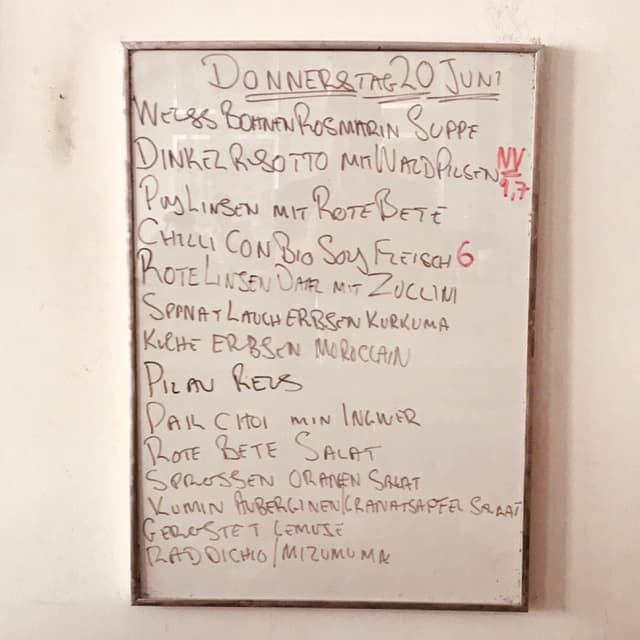 DONNERSTAG 20 JUNI
WEISS BOHNEN ROSMARIN SUPPE
DINKEL RISOTTO MIT WALDPILGEN NV 9,7
PUY LINSEN MIT ROTE BETE
CHILLI CON BIO SOY FLEISCH 6
ROTE LINSEN DAAL MIT ZUCCINI
SPINAT LAUCH ERBSEN KURKUMA
KICHE ERBSEN MOROCCAIN
PILAU REIS
PAK CHOI MIN INGWER
ROTE BETE SALAT
SPROSSEN ORANEN SALAT
KUMIN AUBERGINEN/GRANATSAPFEL SALAT
GEROSTET GEMUSE
RADDICHIO/MIZUMUMA